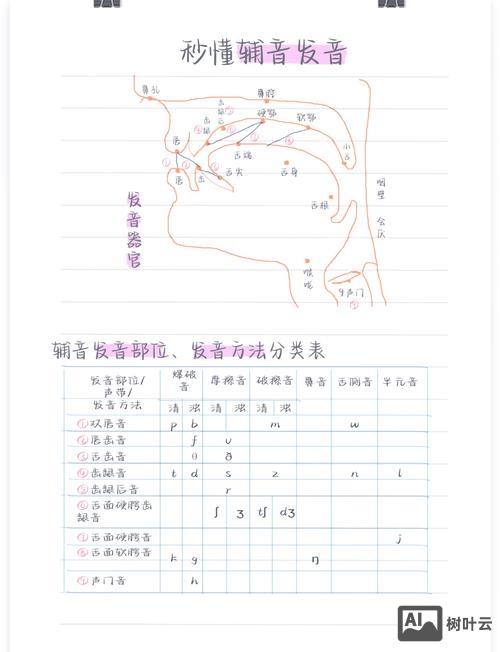 秒懂辅音发音
鼻孔
鼻腔
齿龈后⑤
硬腭
软腭
④齿龈
⑥
⑦
⑧
小舌
唇
舌端
①
②
③
唇
齿
舌尖
舌身
舌根
咽壁
会厌
喉咙
声门
⑨
发音器官
辅音发音部位、发音方法分类表
发音部位/声带/发音方法 爆破音 摩擦音 破擦音 鼻音 舌侧音 半元音
清 浊 清 浊 清 浊
①双唇音 p b m w
②唇齿音 f v
③舌齿音 θ ð
④齿龈音 t d s z n l
⑤齿龈后音 r
⑥舌面硬腭齿龈音 ʃ ʒ tʃ dʒ
⑦舌面硬腭音 j
⑧舌面软腭音 k g ŋ
⑨声门音 h
AI
树叶云